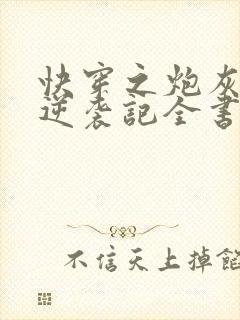 快穿之炮灰
逆袭记全书
不信天上掉馅